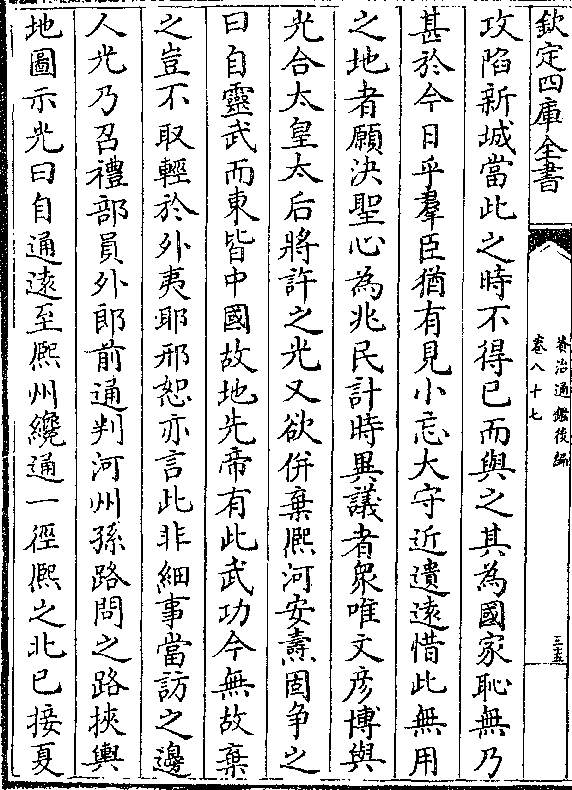 欽定四庫全書
資治通鑑後編
卷八十七
三五
攻陷新城當此之時不得已而與之其為國家恥無乃
甚於今日乎羣臣猶有見小忘大守近遺遠惜此無用
之地者願決聖心為兆民計時異議者衆唯文彥博與
光合太皇太后將許之光又欲併棄熈河安燾固争之
曰自靈武而東皆中國故地先帝有此武功今無故棄
之豈不取輕於外夷耶邢恕亦言此非細事當訪之邊
人光乃召禮部員外郎前通判河州孫路問之路挾輿
地圖示光曰自通逺至熈州纔通一徑熈之北已接夏